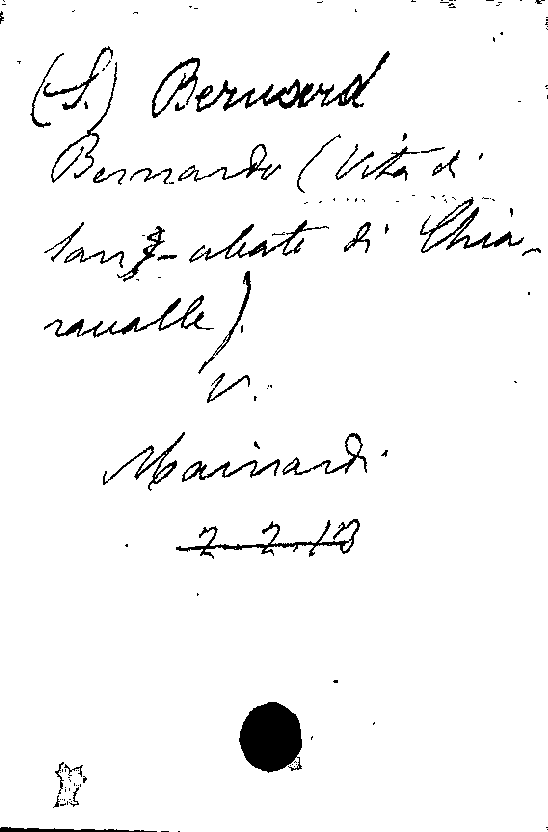 (S.) Bernard
Bernardo (Vita di
San B– abate di Chia-
ravalle).
V.
Mainardi.
2.2.13